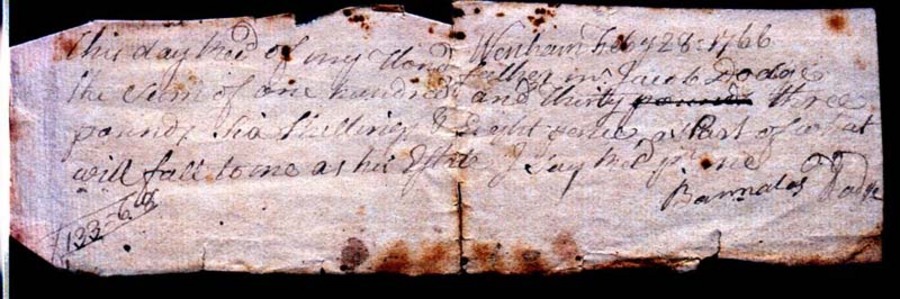 Wenham Feb y 28: 1766
this day Rec'd of my Hond father in Jacob Dodge
the Sum of one hundred and thirty pounds three
pounds Six Shilling & Eight pence as Part of what
will fall to me as his I Say Rec'd pr me
Barnabas Dodge
133=6=8